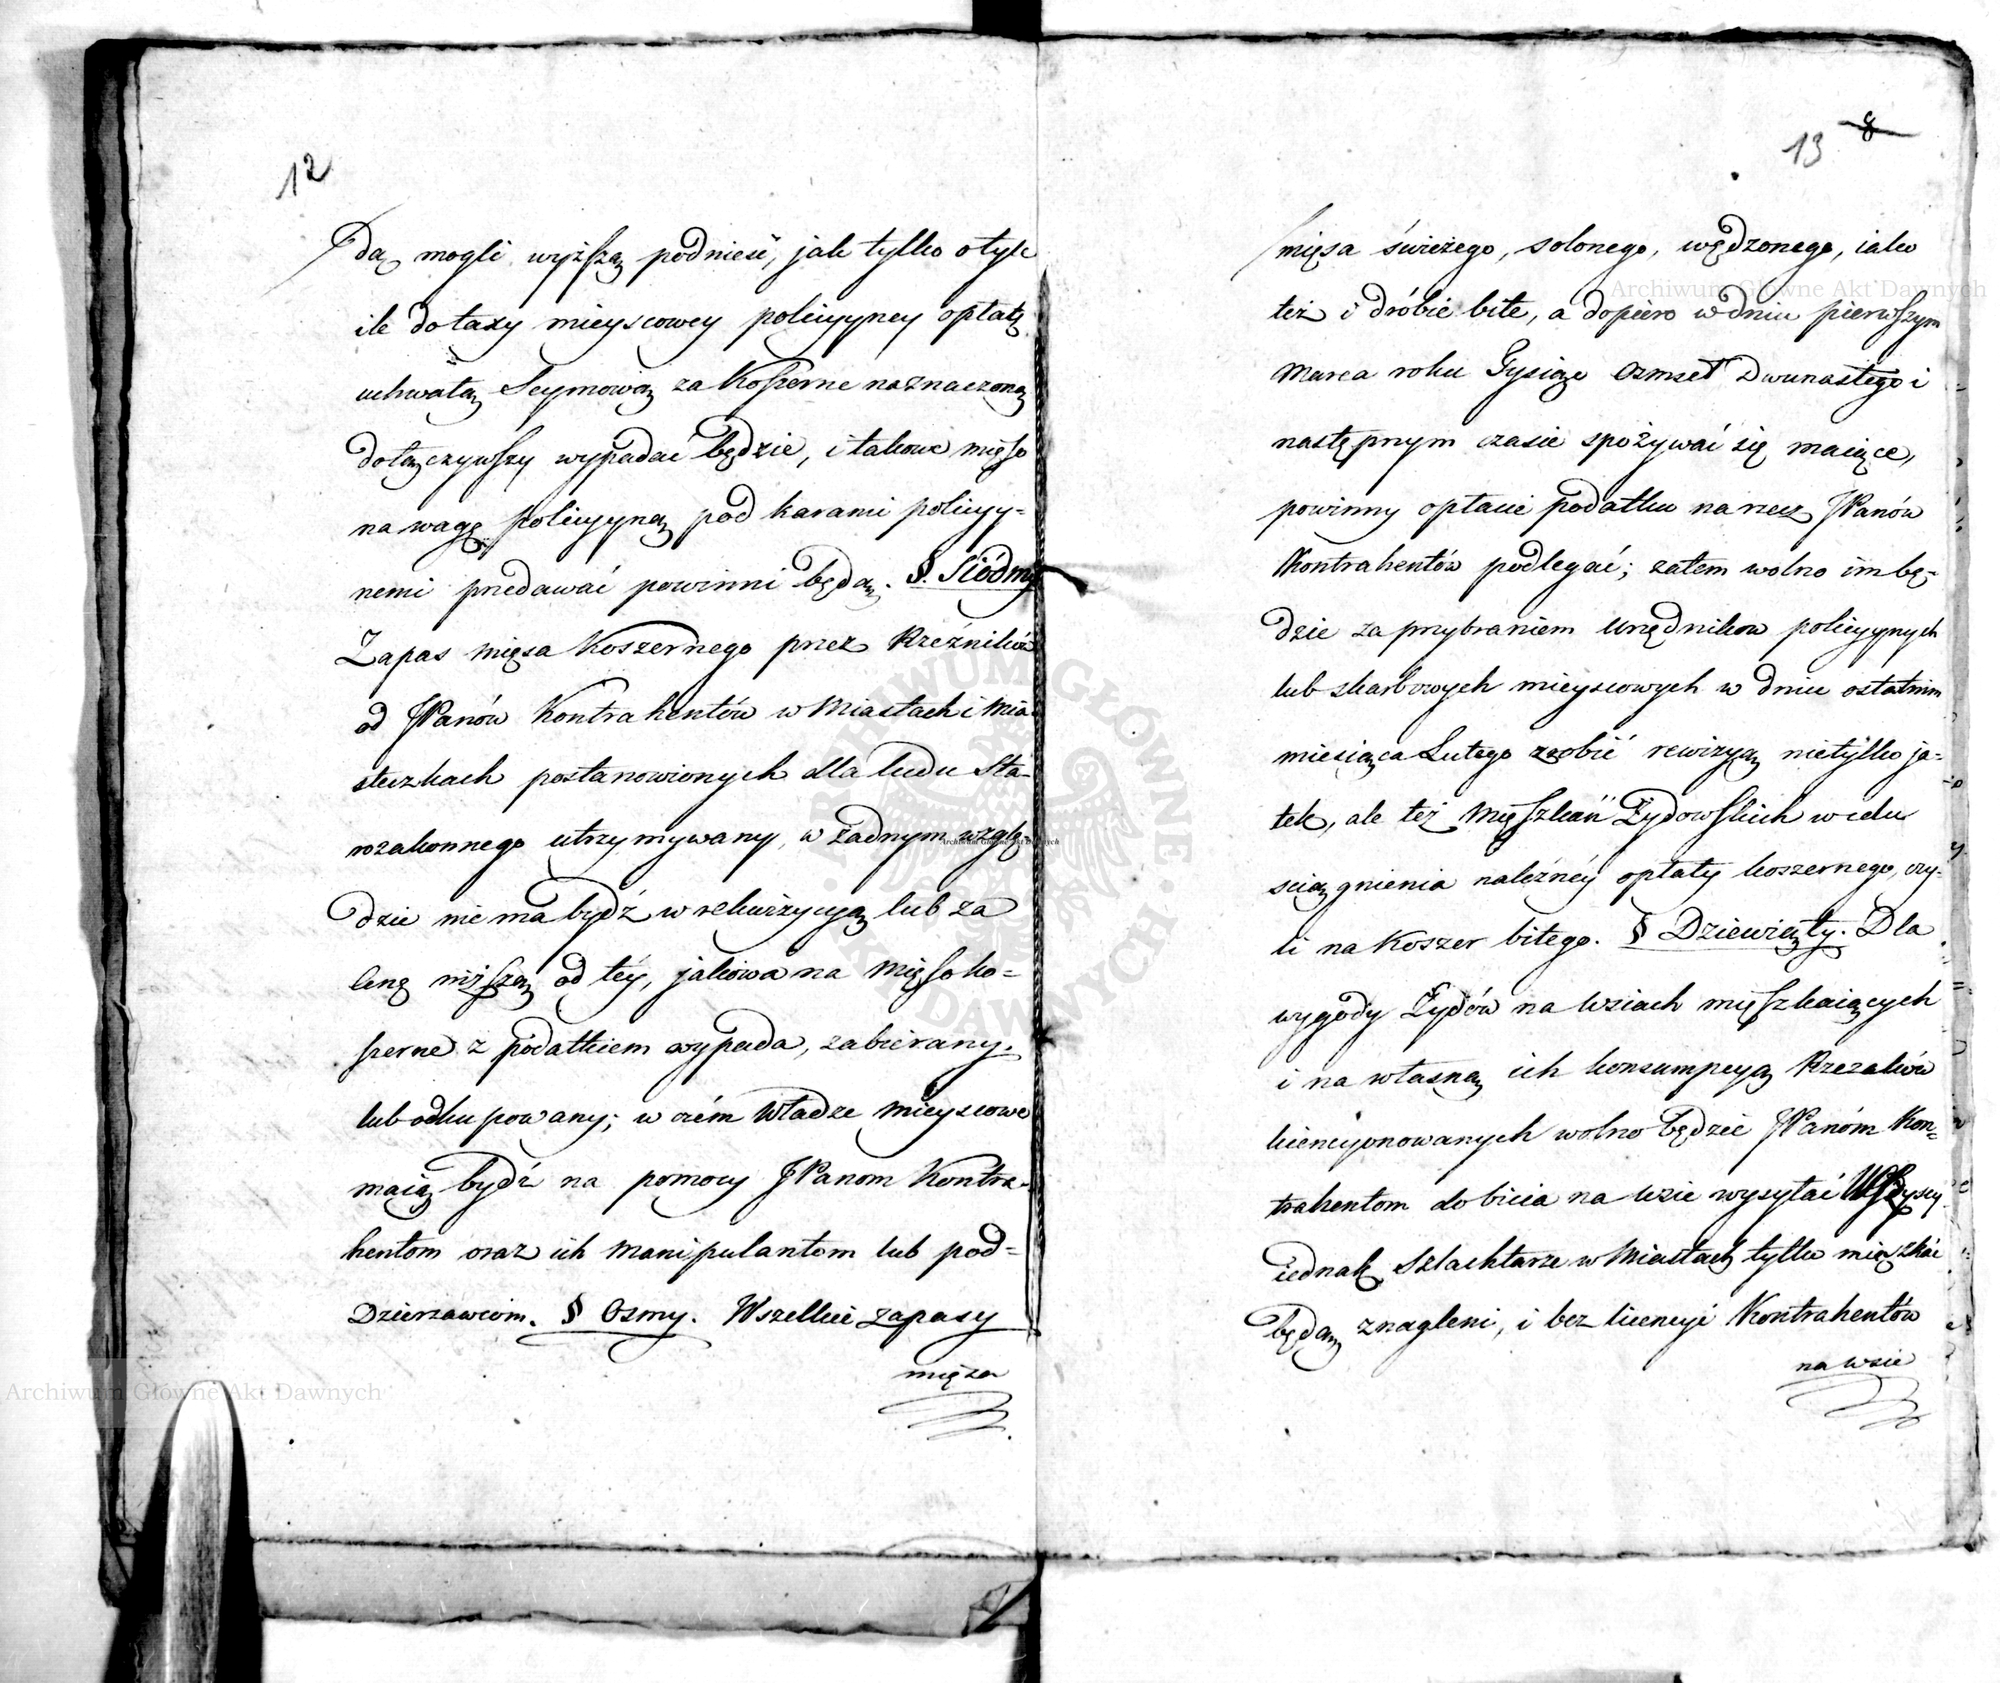 12
dą mogli wyższą podnieść, jak tylko o tyle
ile do taxy mieyscowey policyyney opłatę
uchwałą Seymową za Koszerne naznaczoną
dołączywszy wypadać będzie, i takowe mięso
na wagę policyyną pod karami policyy-
nemi predawać powinni będą. §. Siódmy
Zapas mięsa Koszernego przez Rzeźników
od JPanów Kontrahentów w Miastach i Mia-
steczkach postanowionych dla ludu Sta-
rozakonnego utrzymywany, w żadnym wzglę-
dzie nie ma bydź w rekwizycyą lub za
cenę niższą od téy, jakowa na mięso ko-
szerne z podatkiem wypada, zabierany
lub odkupowany; w czém Władze mieyscowe
maią bydź na pomocy JPanom Kontra-
hentom oraz ich Manipulantom lub pod-
Dzierzawcom. § Osmy. Wszelkie zapasy
mięsa
13 8
mięsa świeżego, solonego, wędzonego, iako
też i dróbie bite, a dopiero w dniu pierwszym
Marca roku Tysiąc Osmset Dwunastego i
następnym czasie spożywać się maiące,
powinny opłacie podatku na rzecz JPanów
Kontrahentów podlegać; zatem wolno im bę-
dzie za przybraniem Urzędników policyynych
lub skarbowych mieyscowych w dniu ostatnim
miesiąca Lutego zrobić rewizyą nietylko ja-
tek, ale też Mięszkań Żydowskich w celu
sciągnienia należnéy opłaty koszernego, czy-
li na Koszer bitego. § Dziewiąty. Dla
wygody Żydów na wsiach mięszkaiących
i na własną ich konsumpcyą Rzezaków
licencyonowanych wolno będzie JPanóm Kon-
trahentom do bicia na wsie wysyłać Wszyscy
iednak Szlachtarze w Miastach tylko mięszkać
będą znagleni, i bez licencyi Kontrahentów
na wsie
Archiwum Główne Akt Dawnych
Archiwum Główne Akt Dawnych
Archiwum Główne Akt Dawnych
ARCHIWUM GŁÓWNE AKT DAWNYCH